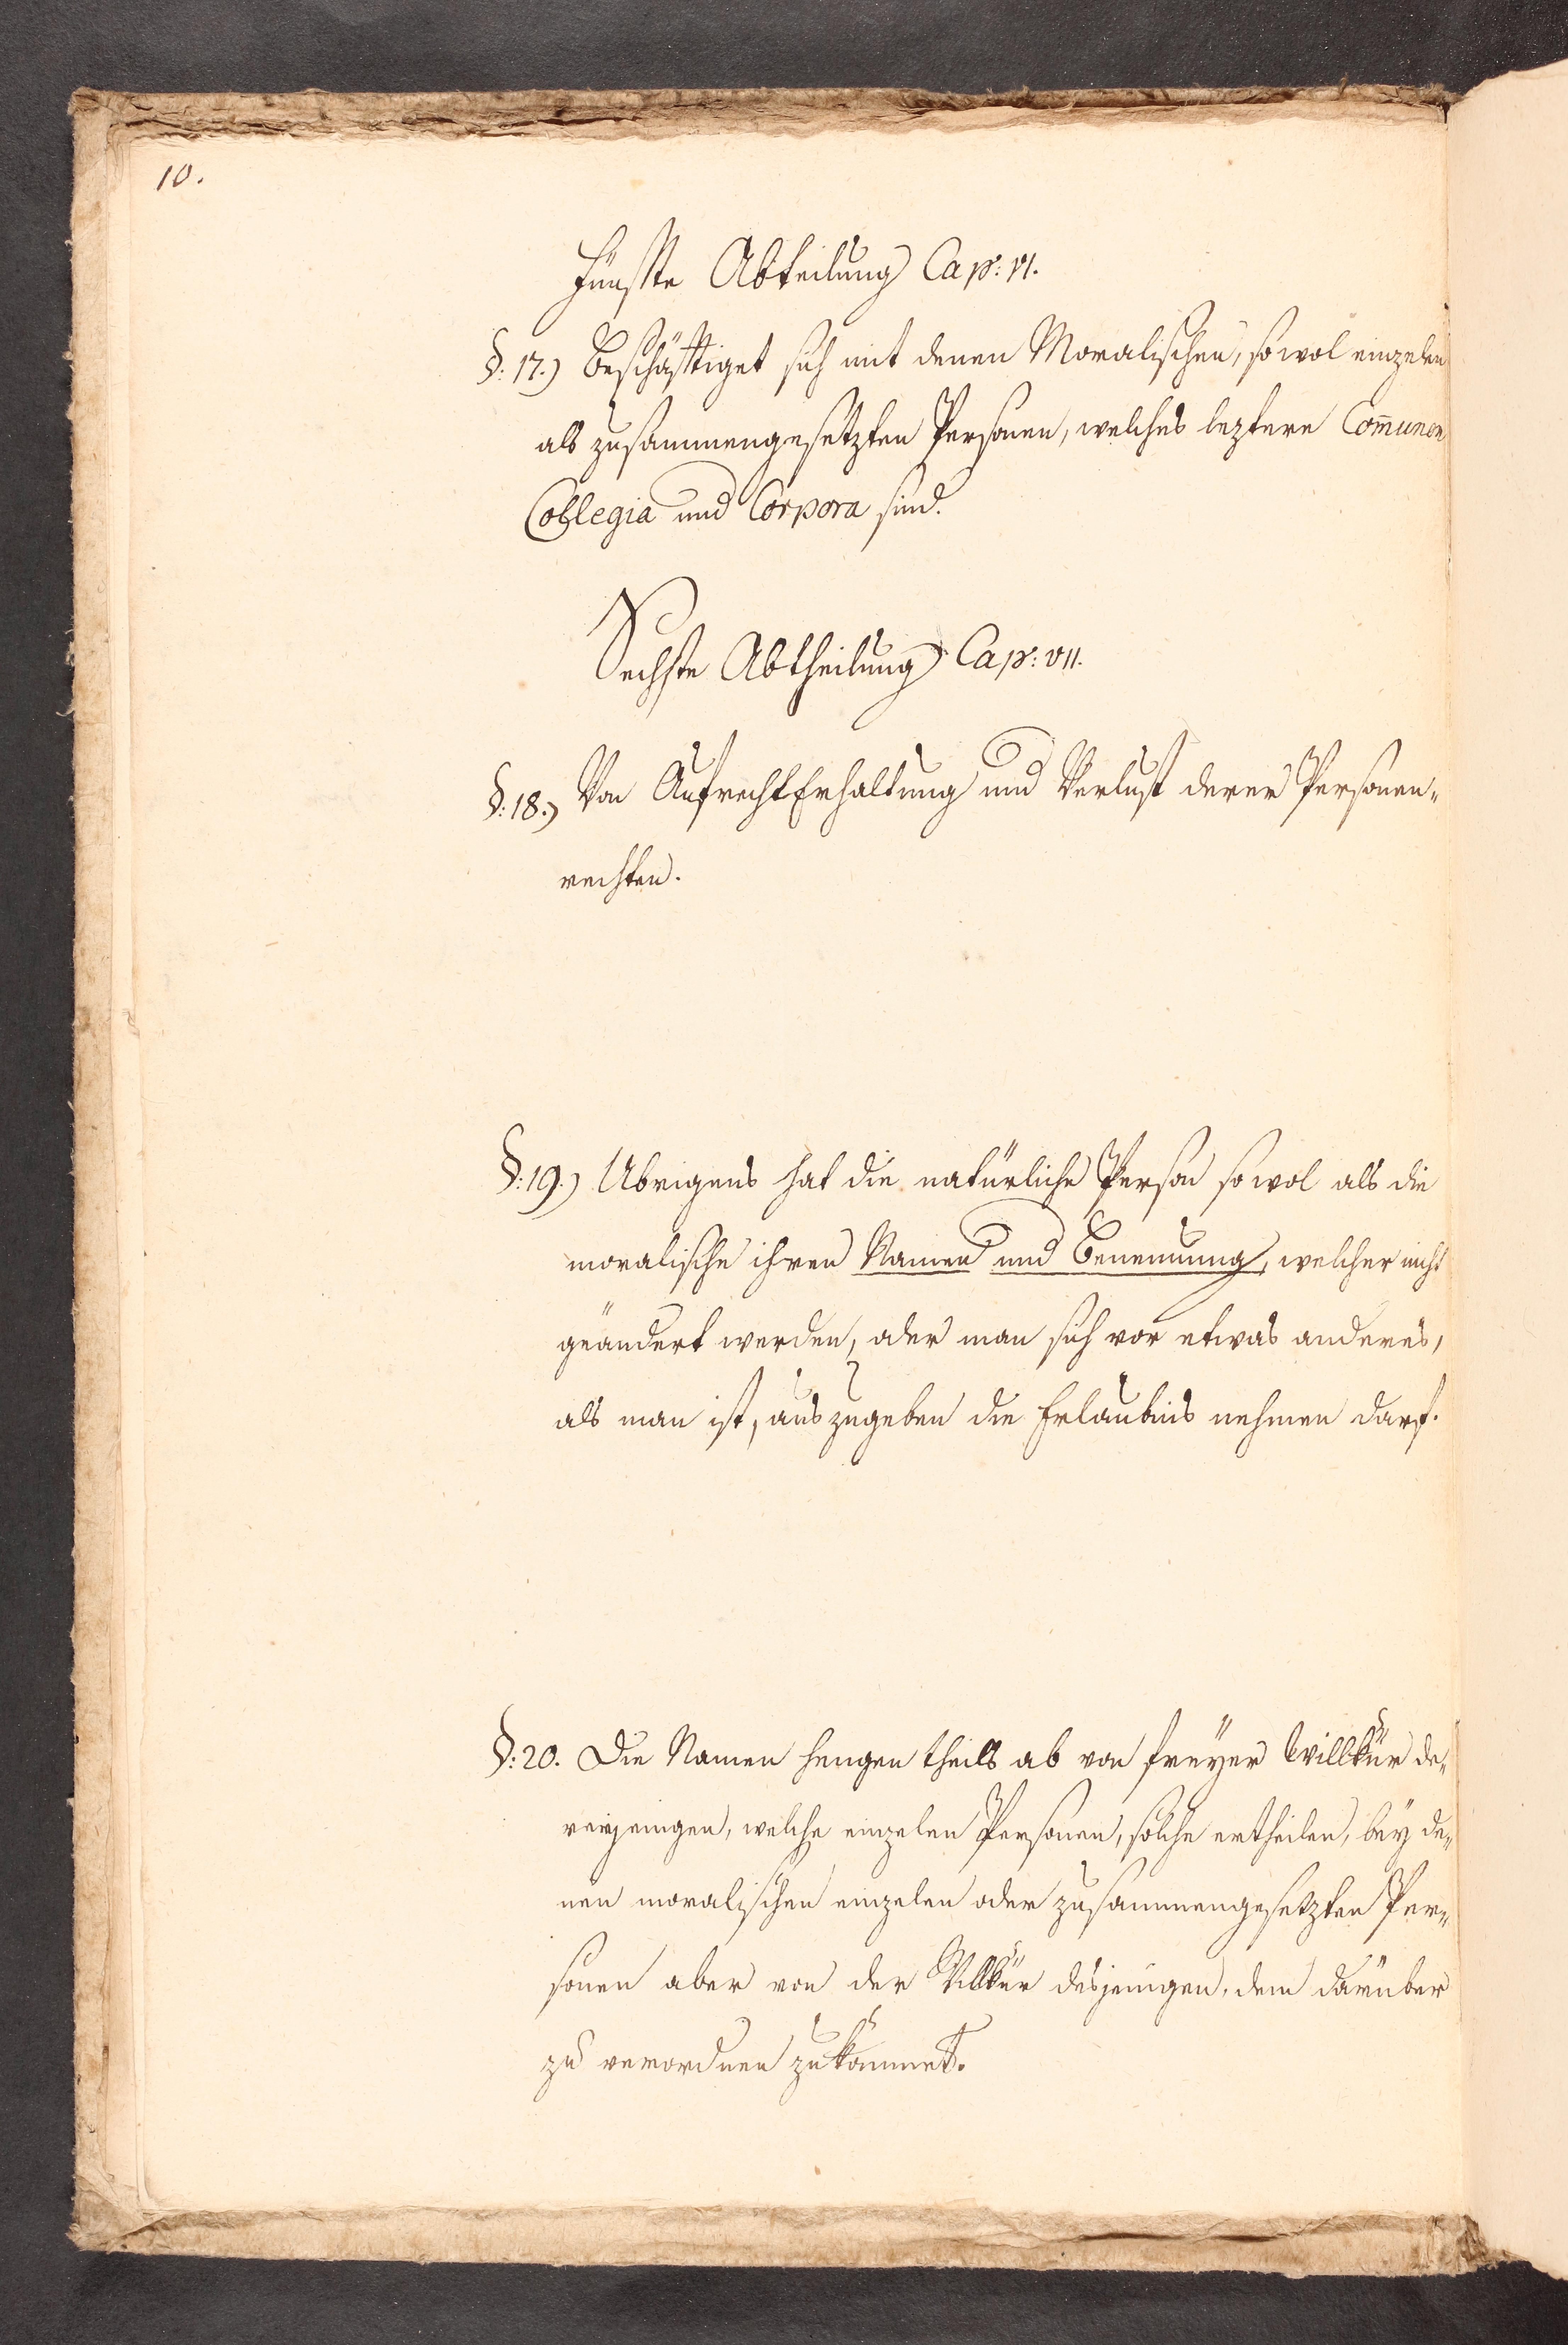 10.
Fünffte Abteilung Cap: VI.
§: 17.) Beschäfftiget sich mit denen Moralischen, sowol einzelen
als zusammengesetzten Personen, welches leztere Com̄unen
Collegia und Corpora sind.
Sechste Abtheilung Cap: VII.
§: 18.) Von AufrechtErhaltung und Verlust derer Personen„
rechten.
§: 19.) Ubrigens hat die natürliche Person sowol als die
moralische ihren Namen und Benennung, welcher nicht
geändert werden, oder man sich vor etwas anderes,
als man ist, auszugeben die Erlaubnis nehmen darf.
§: 20. Die Namen hengen theils ab von freÿer Willkür de„
rerjenigen, welche einzelen Personen, solche ertheilen, beÿ de„
nen moralischen einzelen oder zusammengesetzten Per„
sonen aber von der Willkür desjenigen, dem darüber
zu verordnen zukommet.